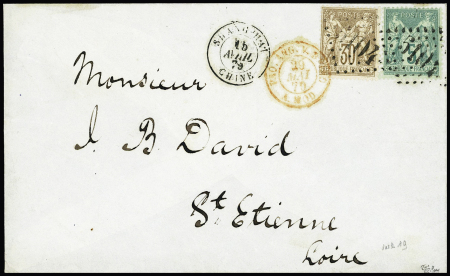 SHANG-HAI
15
AVRIL
79
CHINE
25
MAI
79
30
5104
5104
Monsieur
J. B. David
St Etienne
Loire